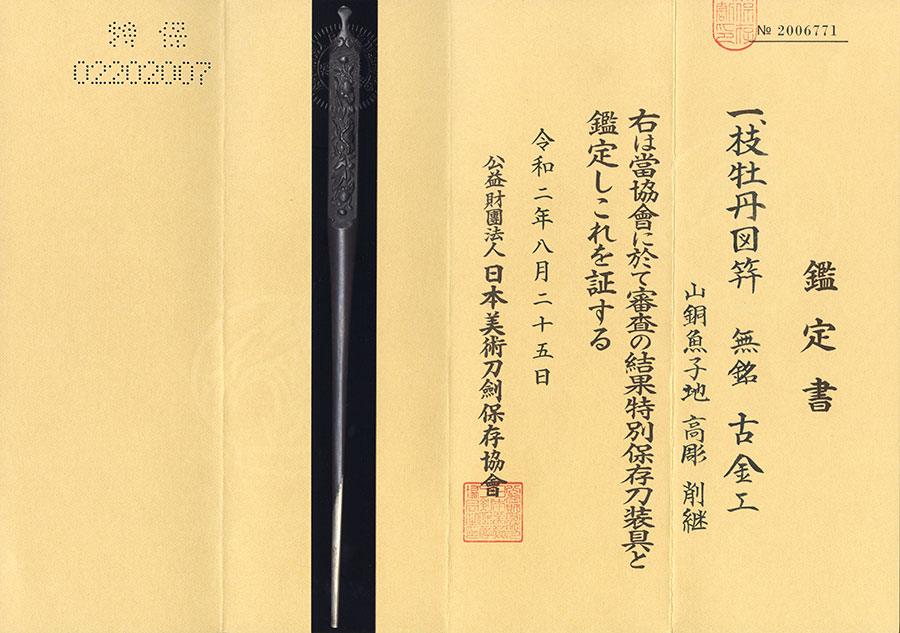 № 2006771
鑑定書
一、枝牡丹図笄 無銘 古金工
山銅魚子地 高彫 削継
右は當協會に於て審査の結果特別保存刀装具と
鑑定しこれを証する
令和二年八月二十五日
公益財團法人 日本美術刀劍保存協會
特 保
02202007